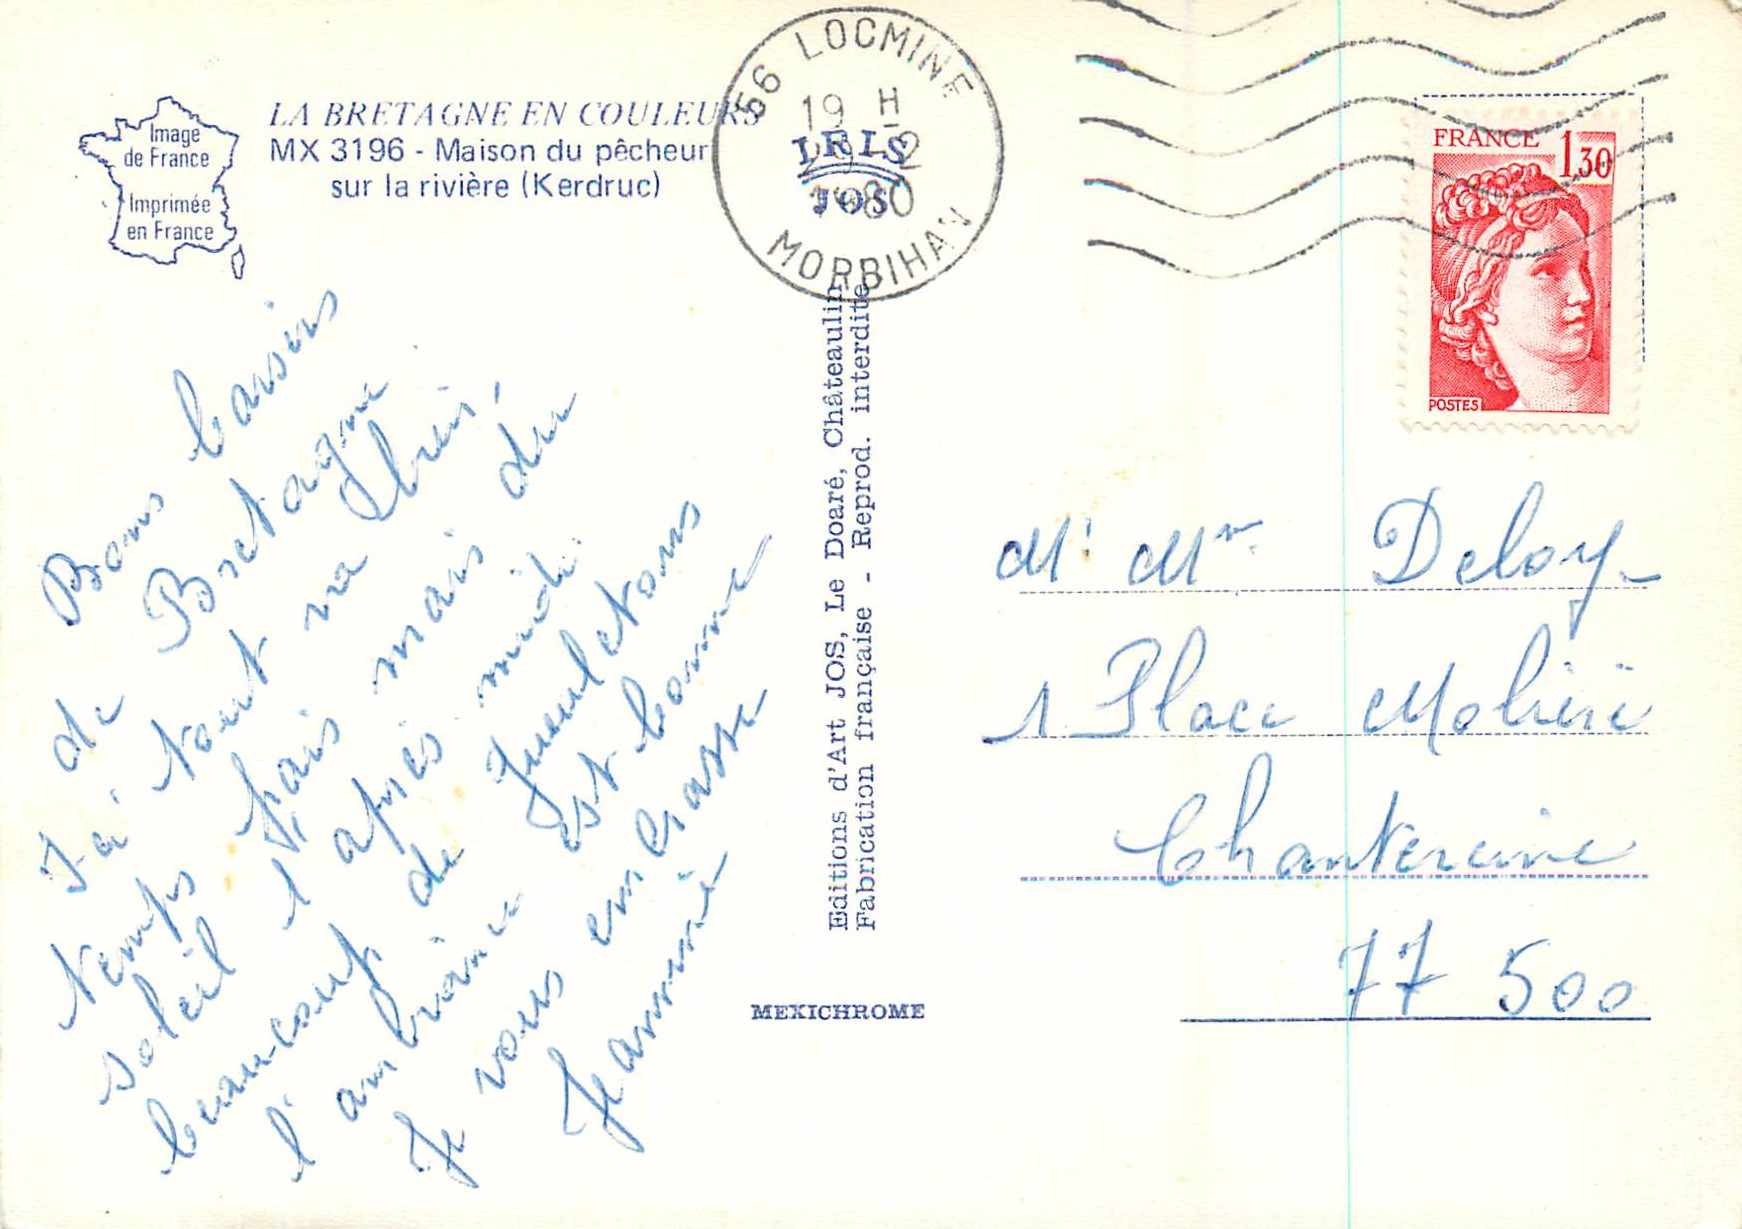 LA BRETAGNE EN COULEURS
MX 3196 - Maison du pêcheur
sur la rivière (Kerdruc)
Image
de France
Imprimée
en France
56 LOCMINE
19 H
1980
MORBIHAN
IRIS
JOS
FRANCE 1,30
POSTES
Bons baisers
de Bretagne
Ici tout va bien,
temps frais mais du
soleil l'après midi.
beaucoup de gueuletons
l'ambiance est bonne
Je vous embrasse
Jeannine
Editions d'Art JOS, Le Doaré, Châteaulin
Fabrication française - Reprod. interdite
MEXICHROME
Mr Mme Deloy
1 Place Molière
Chantereine
77 500